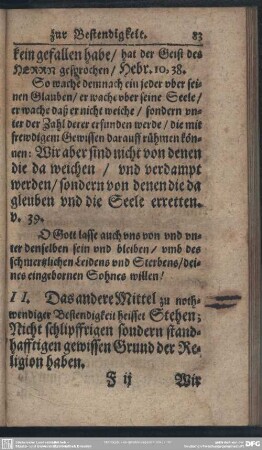 zur Bestendigkeit. 83
kein gefallen habe / hat der Geist des
HERRN gesprochen / Hebr. 10. 38.
So wache demnach ein jeder vber sei-
nen Glauben / er wache vber seine Seele /
er wache daß er nicht weiche / sondern vn-
ter der Zahl derer erfunden werde / die mit
frewdigem Gewissen darauff rühmen kön-
nen: Wir aber sind nicht von denen
die da weichen / vnd verdampt
werden / sondern von denen die da
gleuben vnd die Seele erretten.
v. 39.
O Gott lasse auch vns von vnd vn-
ter denselben sein vnd bleiben / vmb des
schmertzlichen Leidens vnd Sterbens / dei-
nes eingebornen Sohnes willen!
II. Das andere Mittel zu noth-
wendiger Bestendigkeit heisset Stehen;
Nicht schlipffrigen sondern stand-
hafftigen gewissen Grund der Re-
ligion haben.
F ij Wir